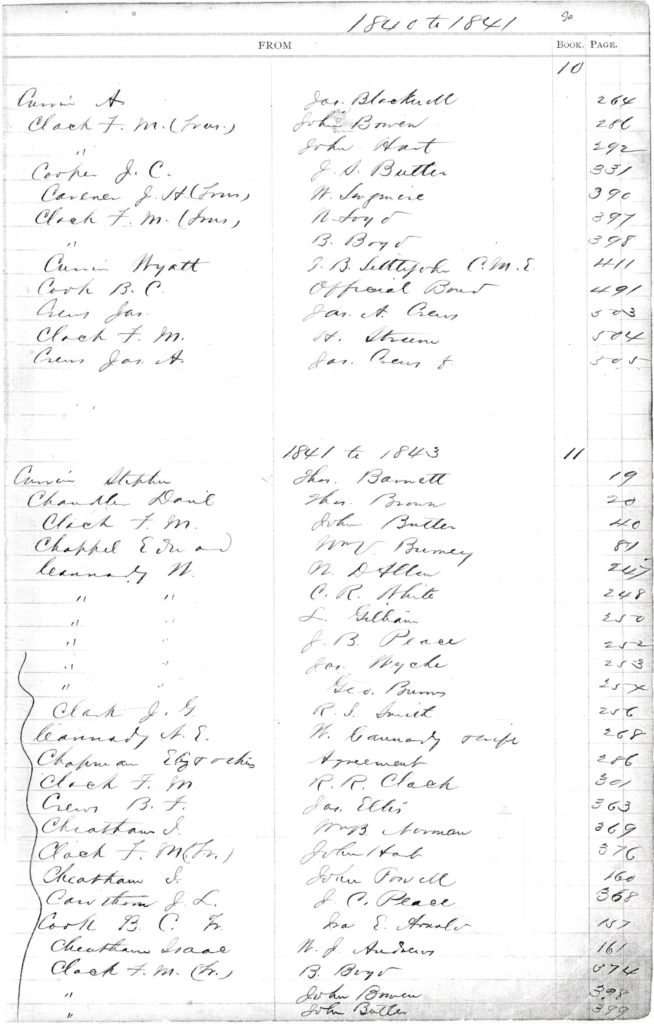 1840 to 1841
FROM BOOK. PAGE.
10
Currin A. Jas. Blackwell 264
Clack F. M. (Trus.) John Bowen 286
" John Hart 292
Cooper J. C. J. S. Butler 331
J. H (Trus) W. 390
Clack F. M. (Trus, N. 397
" B. Boyd 398
Currin Wyatt T. B. Littlejohn C. M. E. 411
Cook B. C. Official Bond 491
Crews Jas. Jas. A. Crews 503
Clack F. M. H. 504
Crews Jas. A. Jas. Crews 505
1841 to 1843 11
Currin Stephen Thos. Barnett 19
Chandler Danl Thos. Brown 20
Clack F. M. John Butler 40
Chappel Edward Wm V. Burney 81
Cannady W. N. D Allen 247
" " C. R. White 248
" " L. Gilliam 250
" " J. B. Peace 252
" " Jas. Wyche 253
" " Geo. Burns 254
Clark J. G. R. J. Smith 256
Cannady N. E. W. Cannady & wife 268
Chapman Agreement 286
Clack F. M. R. R. Clack 301
Crews B. F. Jas. Ellis 363
Cheatham I. Wm B Norman 369
Clack F. M (Tr.) John 376
Cheatham I. John Powell 160
Cawthorn J. L. J. C. Peace 368
Cook B. C. Tr Ira E. Arnold 157
Cheatham Isaac W. J. Andrews 161
Clack F. M. (Tr.) B. Boyd 374
" John Bowen 398
" John Butler 399